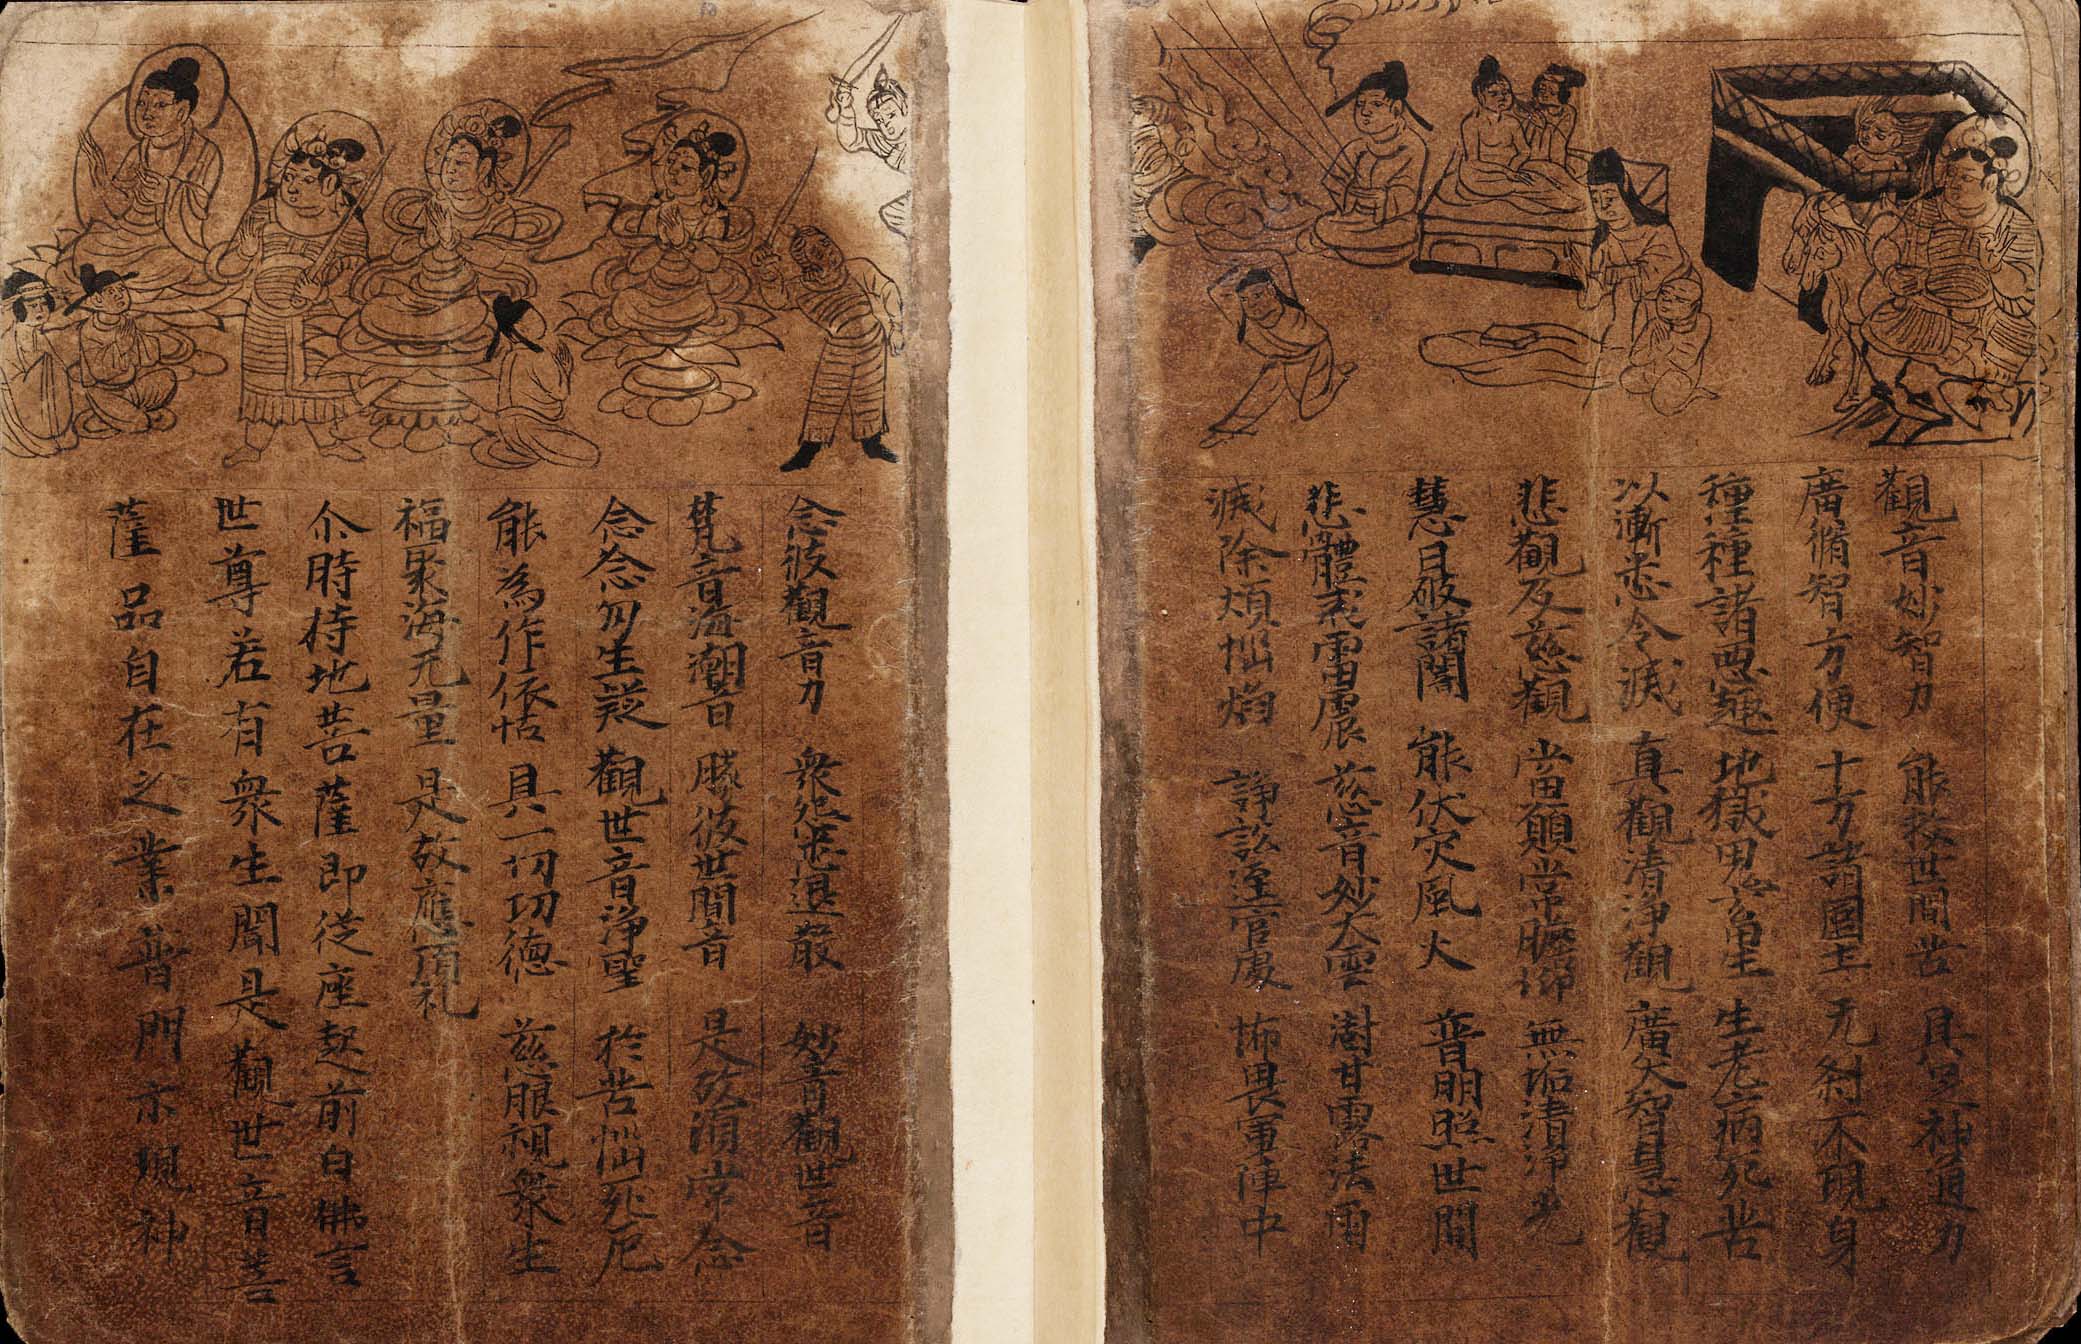 觀音妙智力 能救世間苦 具足神通力
廣脩智方便 十方諸國土 无刹不現身
種種諸惡趣 地獄鬼畜生 生老病死苦
以漸悉令滅 真觀清淨觀 廣大智慧觀
悲觀及慈觀 當願常瞻仰 無垢清淨光
慧日破諸闇 能伏灾風火 普明照世間
悲體戒雷震 慈音妙大雲 澍甘露法雨
滅除煩惱焰 諍訟逕官處 怖畏軍陣中
念彼觀音力 衆怨悉退散 妙音觀世音
梵音海潮音 勝彼世間音 是故須常念
念念勿生疑 觀世音淨聖 於苦惱死厄
能為作依怙 具一切功德 慈眼視衆生
福聚海无量 是故應頂礼
尒時持地菩薩即從座起前白佛言
世尊若有衆生聞是觀世音菩
薩品自在之業普門示現神